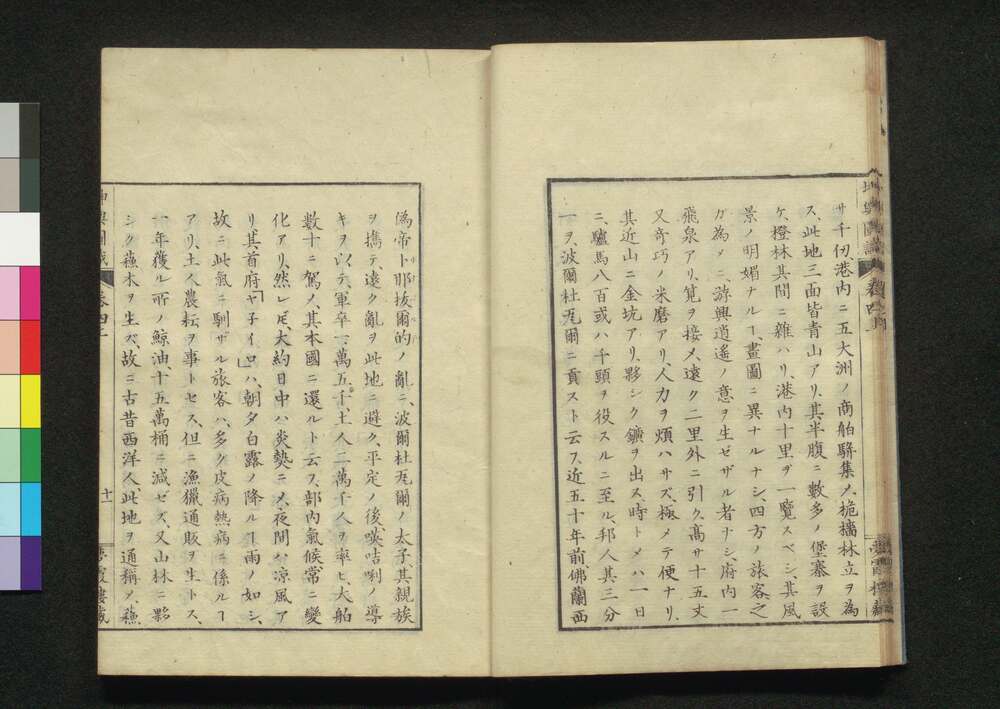 サ千仞港内ニ五大洲ノ商舶駢集メ、桅檣林立ヲ為
ス、此地三面皆青山アリ、其半腹ニ數多ノ堡寨ヲ設
ケ、橙林其間ニ雜ハリ、港内十里ヲ一覽スベシ、其風
景ノ明媚ナルヿ、畫圖ニ異ナルナシ、四方ノ旅客之
ガ為メニ、游興逍遙ノ意ヲ生ゼザル者ナシ、府内一
飛泉アリ、筧ヲ接メ、遠ク二里外ニ引ク、髙サ十五丈
又奇巧ノ米磨アリ、人力ヲ煩ハサズ、極メテ便ナリ、
其近山ニ金坑アリ、夥シク鑛ヲ出ス、時トメハ一日
ニ、驢馬八百或ハ千頭ヲ役スルニ至ル、邦人其三分
一ヲ、波爾杜瓦爾ニ貢スト云フ、近五十年前、佛蘭西
偽帝卜那抜爾的ノ亂ニ、波爾杜瓦爾ノ太子、其親族
ヲ携テ、遠ク亂ヲ此地ニ避ク、平定ノ後、喫咭唎ノ導
キヲ以テ、軍卒一萬五千、土人二萬千人ヲ率ヒ、大舶
數十ニ駕メ、其本國ニ還ルト云フ、部内氣候常ニ變
化アリ、然レ𪜈、大約日中ハ炎𤍠ニメ、夜間ハ凉風ア
リ、其首府「ヤ子イロ」ハ、朝夕白露ノ降ルヿ雨ノ如シ、
故ニ此氣ニ馴ザル旅客ハ、多ク皮病熱病ニ係ルヿ
アリ、土人農耘ヲ事トセス、但ニ漁獵通販ヲ生トス、
一年獲ル所ノ鯨油、十五萬桶ニ減ゼズ、又山林ニ夥
シク蘓木ヲ生ズ、故ニ古昔西洋人、此地ヲ通稱メ、蘓
十一
夢霞樓藏